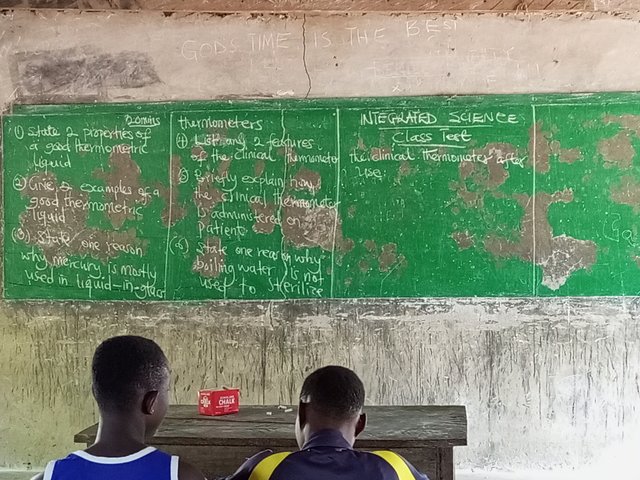 GODS TIME IS THE BEST
INTEGRATED SCIENCE
Class Test
20mins
(1) State 2 properties of
a good thermometric
liquid
(2) Give 2 examples of a
good thermometric
liquid
(3) State one reason
why mercury is mostly
used in liquid-in-glass
thermometers
(4) List any 2 features
of the clinical thermometer
(5) Briefly explain how
the clinical thermometer
is administered on
Patient
(6) State one reason why
boiling water is not
used to sterilize
the clinical thermometer after
use.
CHALK